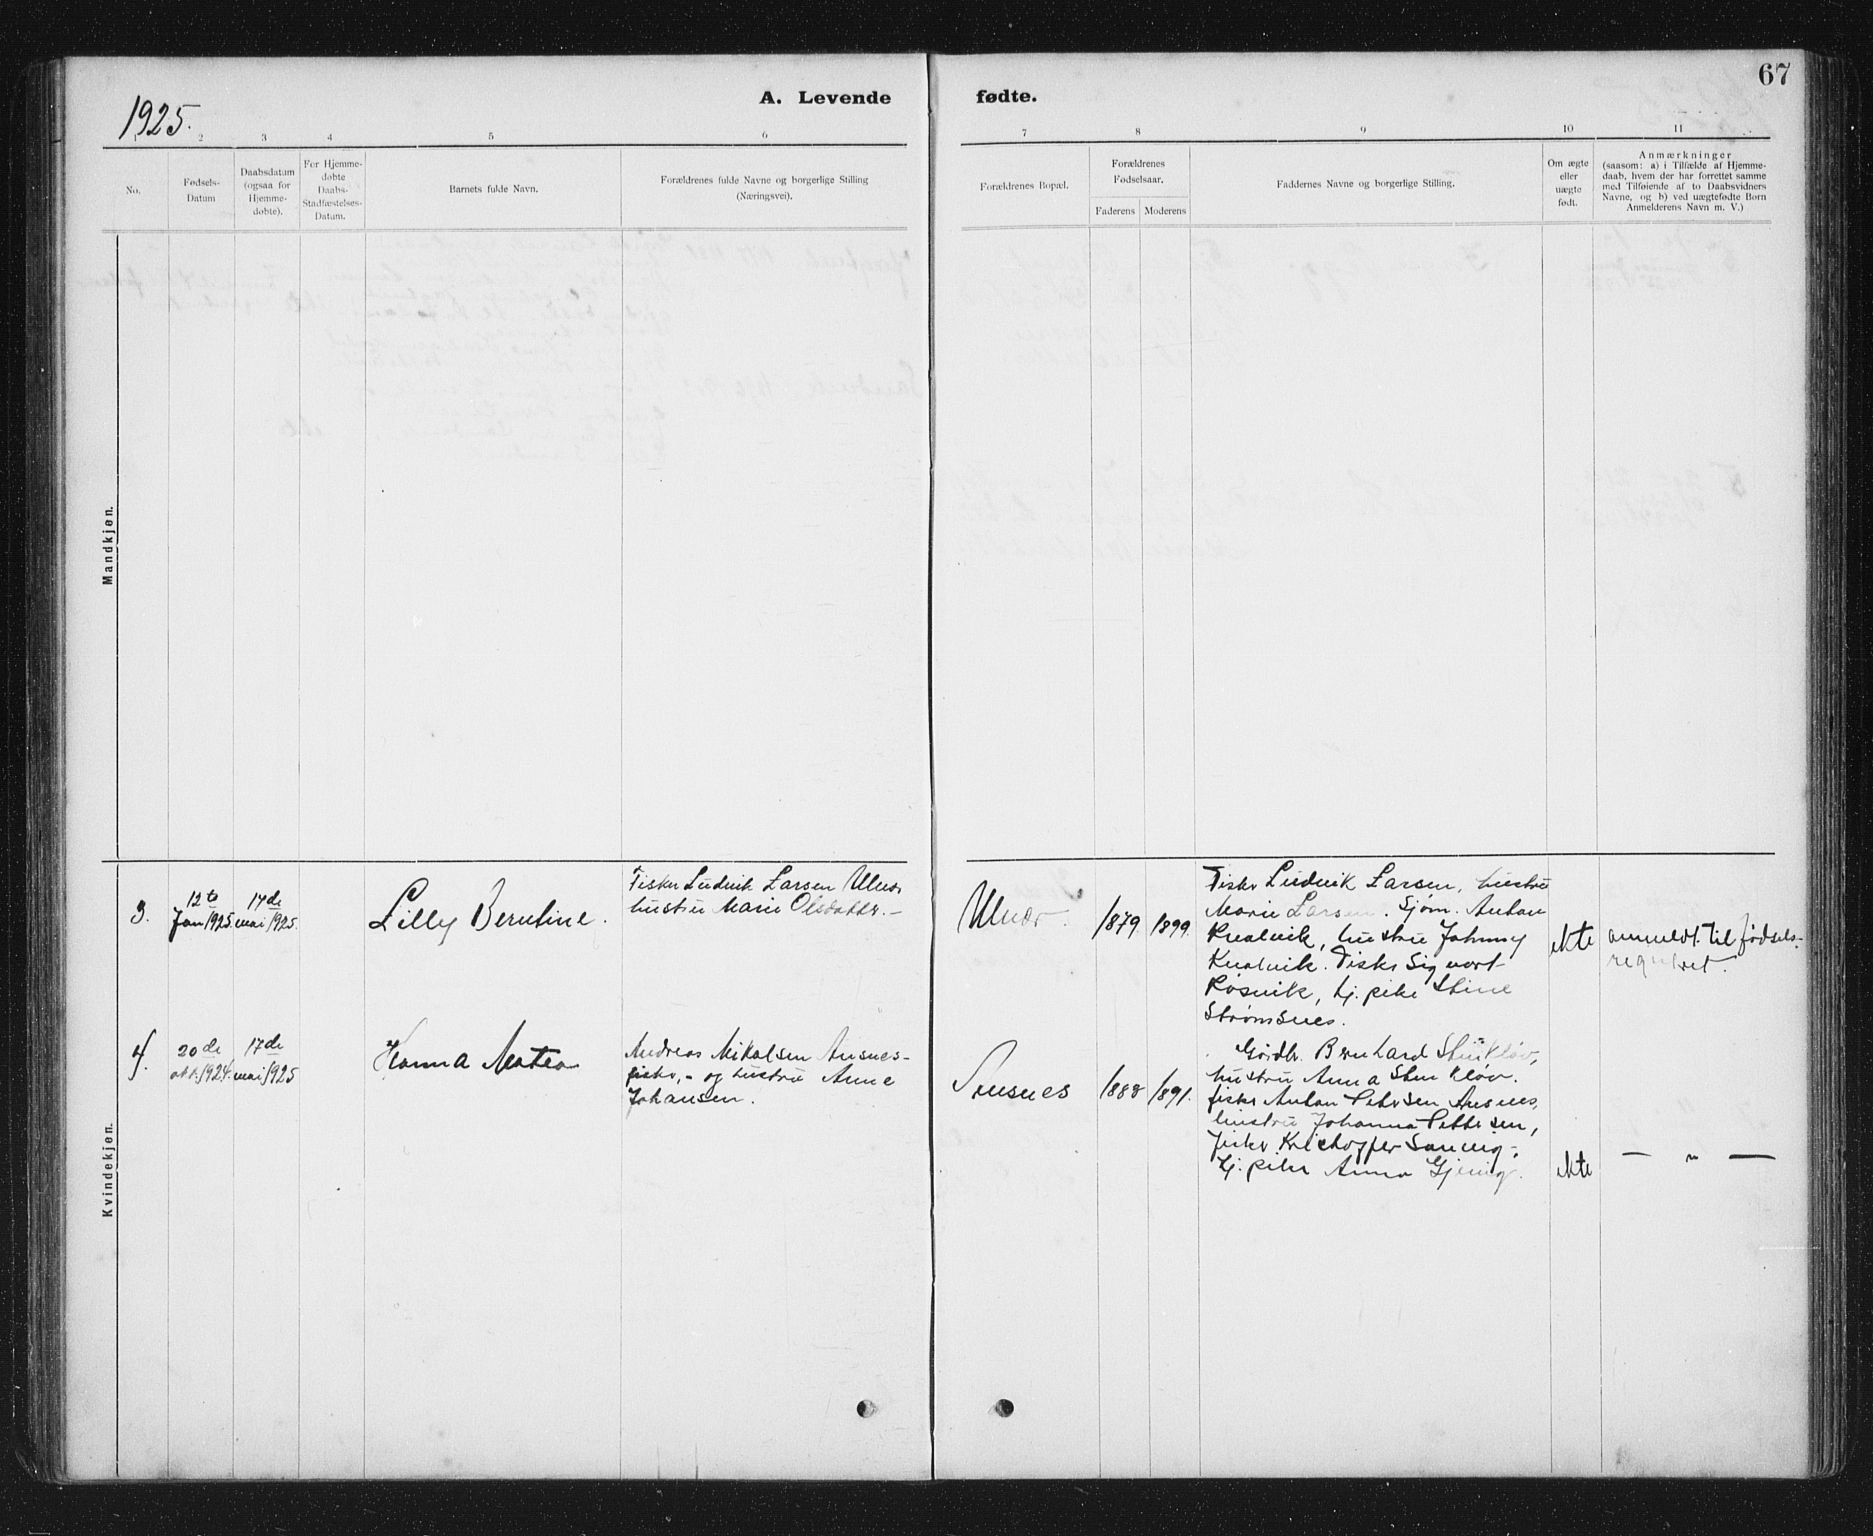 1925.
A. Levende fødte.
67
1
2
3
4
5
6
7
8
9
10
11
No.
Fødsels-
Datum
Daabsdatum
(ogsaa for
Hjemme-
døbte).
For Hjemme-
døbte
Daabs-
Stadfæstelses-
Datum.
Barnets fulde Navn.
Forældrenes fulde Navne og borgerlige Stilling
(Næringsvei).
Forældrenes Bopæl.
Forældrenes
Fødselsaar.
Faderens
Moderens
Faddernes Navne og borgerlige Stilling.
Om ægte
eller
uægte
født.
Anmærkninger
(saasom: a) i Tilfælde af Hjemme-
daab, hvem der har forrettet samme
med Tilføiende af to Daabsvidners
Navne, og b) ved uægtefødte Børn
Anmelderens Navn m. V.)
Mandkjøn.
Kvindekjøn.
3.
12te
Jan 1925.
17de
mai 1925.
Lilly Berntine.
Fisker Ludvik Larsen Ulvær
hustru Marie Olsdatter. -
Ulvær.
1879.
1899.
Fisker Ludvik Larsen, hustru
Marie Larsen. Sjøm. Anton
Kvalvik, hustru Johnny
Kvalvik. Fisker Sigvart
Rosvik, hj. pike Stine
Strømsnes.
ekte
anmeldt til fødsels-
registret.
4.
20de
okt. 1924.
17de
mai 1925
Hanna Matea
Andreas Mikalsen Ausnes-
fisker, - og hustru Anne
Johansen.
1888
1891.
Gårdbr. Bernhard Stenkløv,
hustru Anna Stenkløv.
fisker Anton Petersen Ausnes,
hustru Johanna Pettersen,
fisker Kristoffer
hj. pike Anna
ekte
— " —